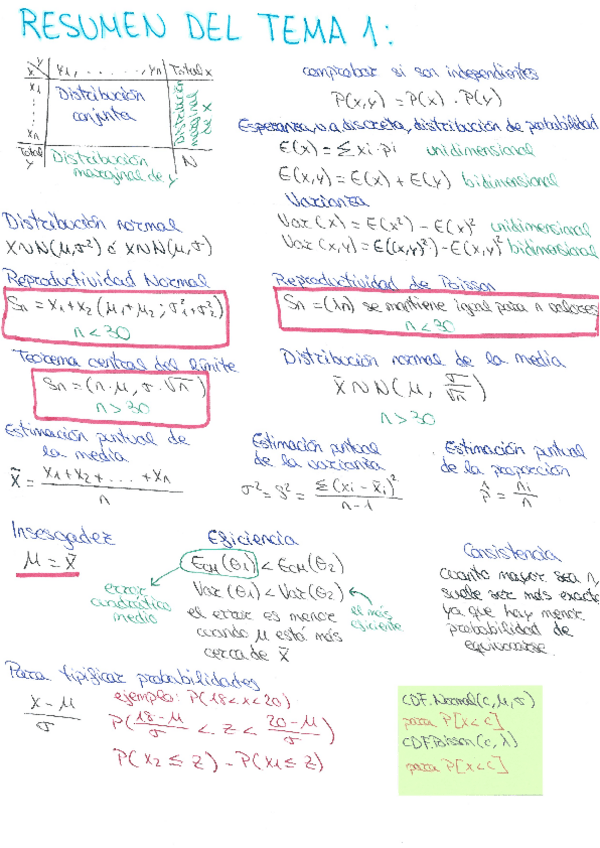 RESUMEN DEL TEMA 1:
X Y Y1, . . . . . , Yn Total X
X1
:
:
Xn
Distribución
conjunta
Distribución
marginal
de X
Total
Y
Distribución
marginal de Y
N
comprobar si son independientes
P(x,y) = P(x) . P(y)
Esperanza, v.a discreta, distribución de probabilidad
E(x) = Σ xi · pi unidimensional
E(x,y) = E(x) + E(y) bidimensional
Varianza
Var (x) = E(x²) - E(x)² unidimensional
Var (x,y) = E((x,y)²) - E(x,y)² bidimensional
Distribución normal
X~N(μ,σ²) ó X~N(μ,σ)
Reproductividad Normal
Sn = X1+X2 (μ1+μ2 ; σ²1+σ²2)
n < 30
Reproductividad de Poisson
Sn = (λn) se mantiene igual para n valores
n < 30
Teorema central del límite
Sn = (n·μ, σ·√n)
n > 30
Distribución normal de la media
x̄ ~ N(μ, σ/√n)
n > 30
Estimación puntual de
la media
x̄ = X1+X2+. . . . +Xn / n
Estimación puntual
de la varianza
σ² = s² = Σ(xi - x̄i)² / n-1
Estimación puntual
de la proporción
p̂ = ni / n
Insesgadez
μ = x̄
Eficiencia
ECM(θ1) < ECM(θ2)
Var (θ1) < Var (θ2)
error
cuadrático
medio
el error es menor
cuando μ está más
cerca de x̄
el más
eficiente
Consistencia
cuanto mayor sea n,
suele ser más exacto
ya que hay menor
probabilidad de
equivocarse.
Para tipificar probabilidades
x - μ / σ
ejemplo: P(18<x<20)
P(18-μ/σ < z < 20-μ/σ)
P(x2 ≤ z) - P(x1 ≤ z)
CDF.Normal(c,μ,σ)
para P[x<c]
CDF.Poisson(c,λ)
para P[x<c]